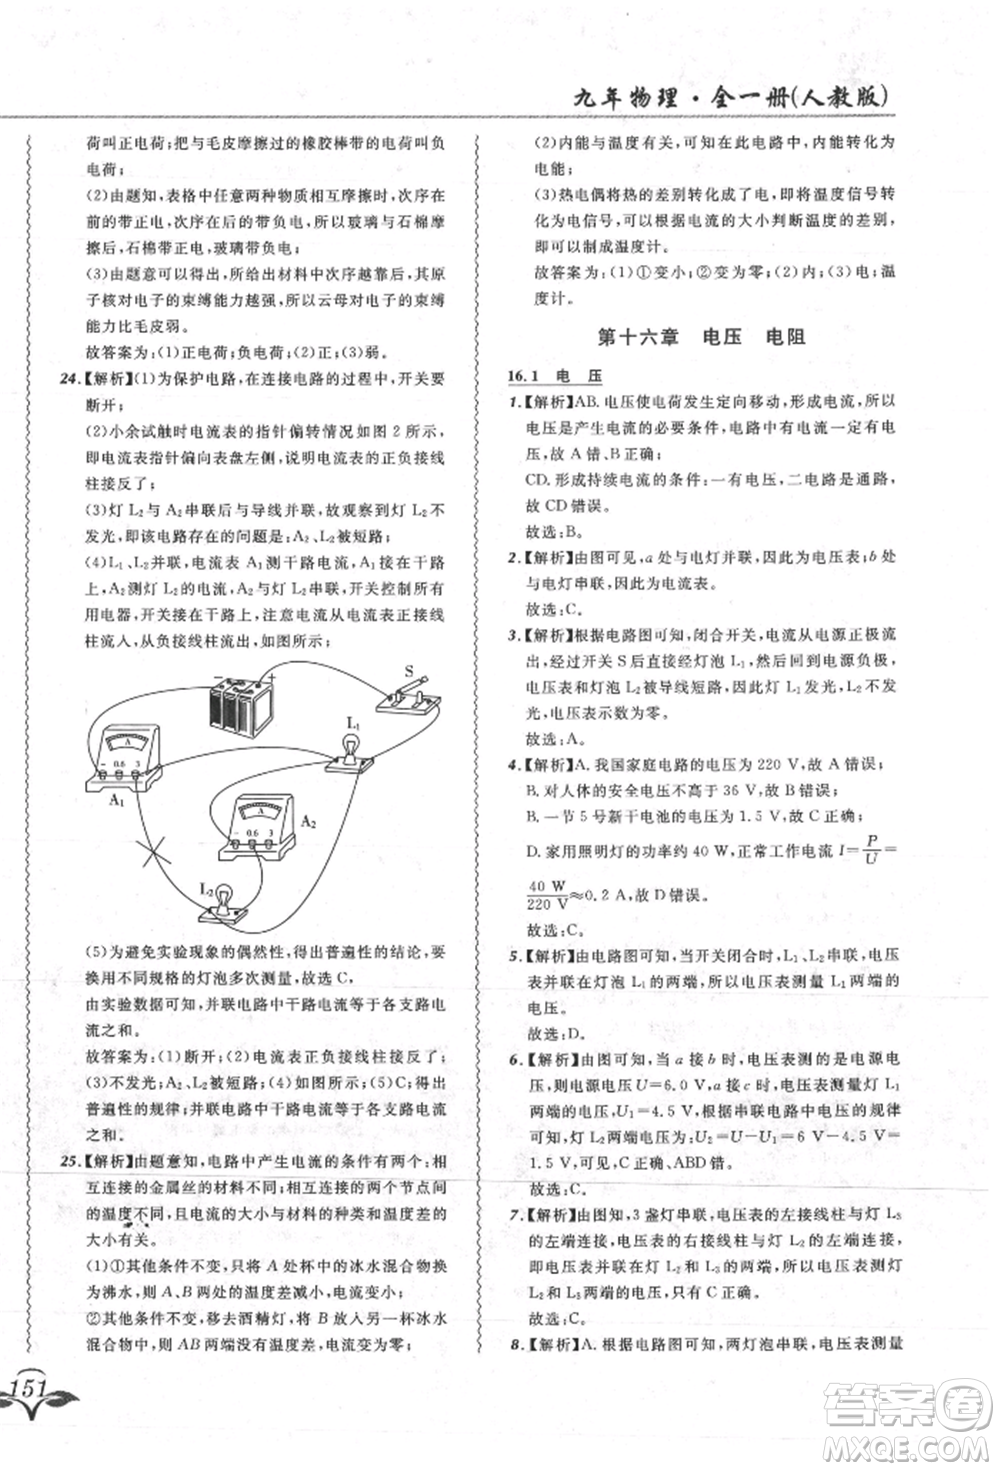 九年物理·全一册(人教版)
荷叫正电荷;把与毛皮摩擦过的橡胶棒带的电荷叫负
电荷;
(2)由题知,表格中任意两种物质相互摩擦时,次序在
前的带正电,次序在后的带负电,所以玻璃与石棉摩
擦后,石棉带正电,玻璃带负电;
(3)由题意可以得出,所给出材料中次序越靠前,其原
子核对电子的束缚能力越强,所以云母对电子的束缚
能力比毛皮弱。
故答案为:(1)正电荷;负电荷;(2)正;(3)弱。
24.【解析】(1)为保护电路,在连接电路的过程中,开关要
断开;
(2)小余试触时电流表的指针偏转情况如图 2 所示,
即电流表指针偏向表盘左侧,说明电流表的正负接线
柱接反了;
(3)灯 L₂ 与 A₂ 串联后与导线并联,故观察到灯 L₂ 不
发光,即该电路存在的问题是:A₂、L₂被短路;
(4)L₁、L₂ 并联,电流表 A₁ 测干路电流,开关控制整个电
路,A₂ 测灯 L₂ 的电流,A₂ 与 L₂ 串联,开关控制所有
用电器,开关接在干路上,注意电流从电流表正接线
柱流入,从负接线柱流出,如图所示;
− + S
L₁
A
− 0.6 3
A₁
A
− 0.6 3
A₂
L₂
(5)为避免实验现象的偶然性,得出普遍性的结论,要
换用不同规格的灯泡多次测量,故选 C,
由实验数据可知,并联电路中干路电流等于各支路电
流之和。
故答案为:(1)断开;(2)电流表正负接线柱接反了;
(3)不发光;A₂、L₂ 被短路;(4)如图所示;(5)C;得出
普遍性的规律;并联电路中干路电流等于各支路电流
之和。
25.【解析】由题意知,电路中产生电流的条件有两个:相
互连接的金属丝的材料不同,相互连接的两个节点间
的温度不同,且电流的大小与材料的种类和温度差的
大小有关。
(1)①其他条件不变,只将 A 处杯中的冰水混合物换
为沸水,则 A、B 两处的温度差减小,电流变小;
②其他条件不变,移去酒精灯,将 B 放入另一杯冰水
混合物中,则 AB 两端没有温度差,电流变为零;
151
(2)内能与温度有关,可知在此电路中,内能转化为
电能;
(3)热电偶将热的差别转化成了电,即将温度信号转
化为电信号,可以根据电流的大小判断温度的差别,
即可以制成温度计。
故答案为:(1)①变小;②变为零;(2)内;(3)电;温
度计。
第十六章 电压 电阻
16.1 电 压
1.【解析】AB. 电压使电荷发生定向移动,形成电流,所以
电压是产生电流的必要条件,电路中有电流一定有电
压,故 A 错、B 正确。
CD. 形成持续电流的条件:一有电压,二电路是通路,
故 CD 错误。
故选:B。
2.【解析】由图可见,a 处与电灯并联,为电压表;b 处
与电灯串联,为电流表。
故选:C。
3.【解析】根据电路图可知,闭合开关,电流从电源正极流
出,经过开关 S 后直接经灯泡 L₁,然后回到电源负极,
电压表和灯泡 L₂ 被导线短路,所以灯 L₁ 发光,L₂ 不发
光,电压表示数为零。
故选:A。
4.【解析】A. 我国家庭电路的电压为 220 V,故 A 错误;
B. 对人体的安全电压不高于 36 V,故 B 错误;
C. 一节 5 号新干电池的电压为 1.5 V,故 C 正确;
D. 家用照明灯的功率约 40 W,正常工作电流 I＝P/U＝
40 W/220 V≈0.2 A,故 D 错误。
故选:C。
5.【解析】由电路图可知,当开关闭合时,L₁、L₂ 串联,电压
表并联在灯泡 L₁ 的两端,所以电压表测量 L₁ 两端的
电压。
故选:D。
6.【解析】由图可知,当 a 接 b 时,电压表测的是电源电
压,即电源电压 U＝6.0 V,a 接 c 时,电压表测量灯 L₁
两端的电压,U₁＝4.5 V,根据串联电路电压的特点
可知,灯 L₂ 两端电压为:U₂＝U－U₁＝6 V－4.5 V＝
1.5 V;故 C 正确、ABD 错误。
故选:C。
7.【解析】由图知,3 盏灯串联,电压表的左接线柱与灯 L₃
的左端连接,电压表的右接线柱与灯 L₂ 的右端连接,
则电压表并联在灯 L₂ 和 L₃ 的两端,所以电压表测量灯
L₂ 和 L₃ 两端的电压,只有 C 正确。
故选:C。
8.【解析】A. 根据电路图可知,两灯泡串联,电压表测量
答案卷
MXQE.COM